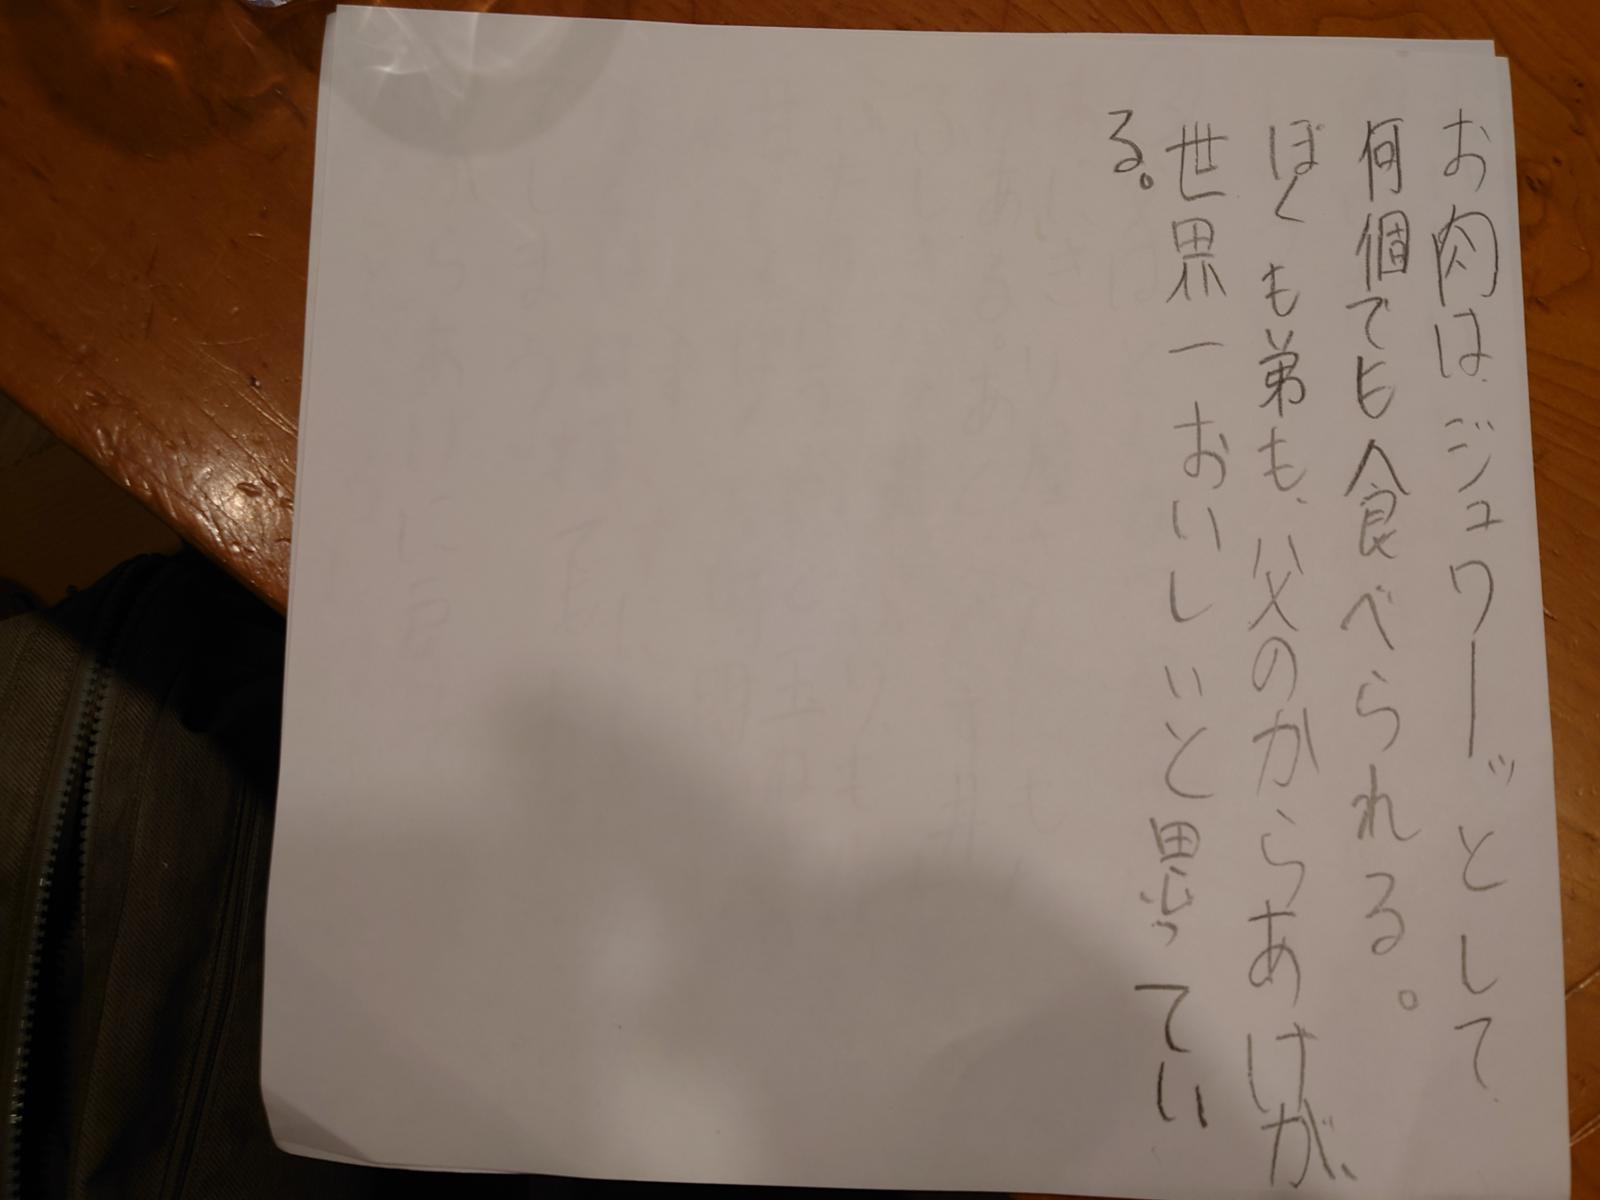 お肉はジュワーッとして
何個でも食べられる。
ぼくも弟も、父のからあげが、
世界一おいしいと思ってい
る。